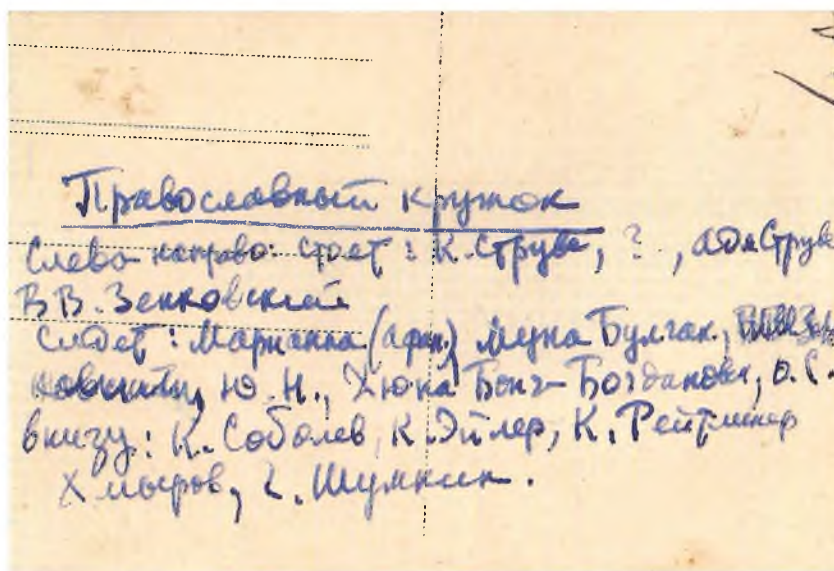 Православный кружок
Слева направо: стоят: К. Струве, ?, Адя Струве
В В. Зеньковский
сидят: Марианна (афин.) Муна Булгак.,
Ю. Н., Хюна Бонч-Богдановск,
внизу: К. Соболев, К. Эйлер, К. Рейтлингер
Хмыров, Шумкин.